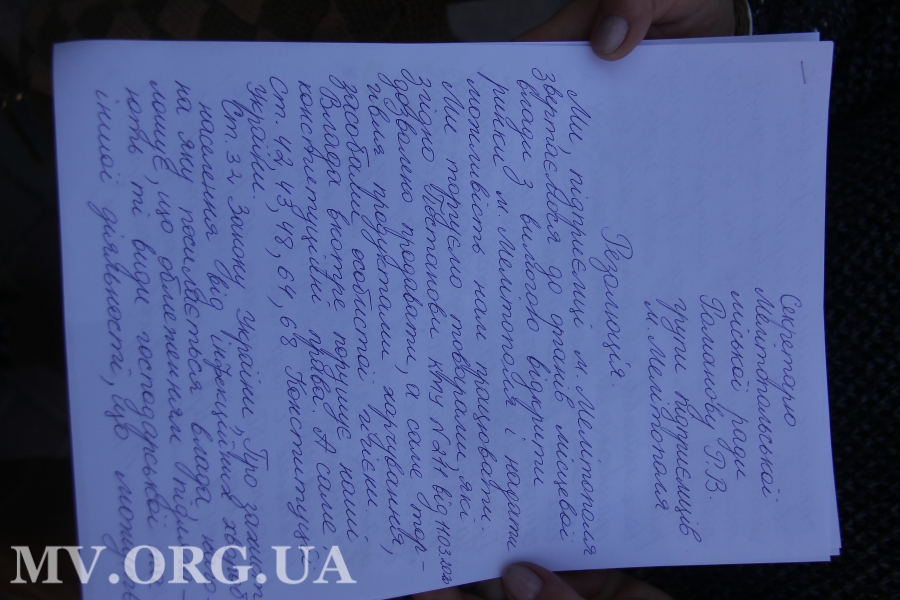 Секретарю
Мелитопольської
міської ради
Романову Р.В.
групи підприємців
м. Мелітополя
Резолюція.
Ми, підприємці м. Мелітополя
звертаємся до органів місцевої
влади з вимогою відкрити
ринки м. Мелітополя і надати
можливість нам працювати.
Ми торгуємо товарами, які
згідно Постанови КМУ №211 від 11.03.2020
дозволено продавати, а саме тор-
гівля продуктами харчування,
засобами особистої гігієни.
Влада вкотре порушує наші
конституційні права. А саме
ст. 42, 43, 48, 64, 68 Конституції
України.
Ст. 32 Закону України "Про захист
населення від інфекційних
на яку посилається влада, не
що обмеженням
ють ті види господарської
іншої діяльності, що можу
MV.ORG.UA